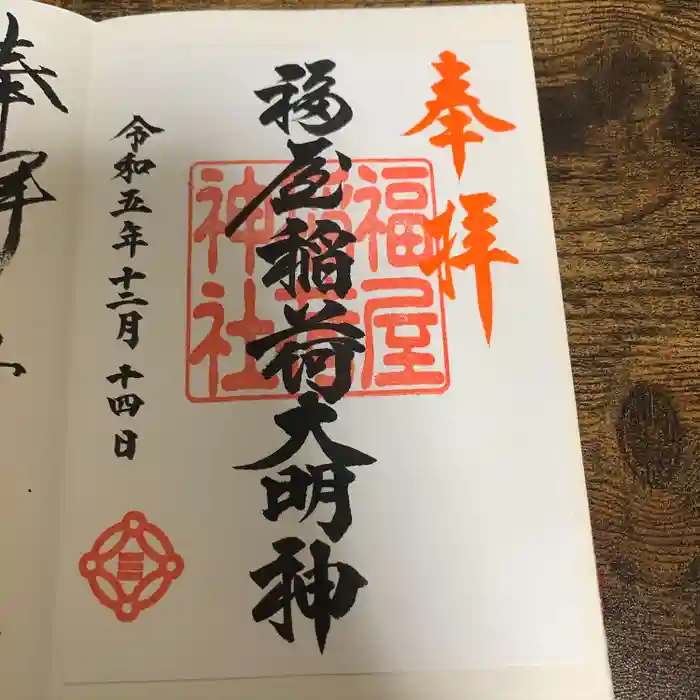 奉拝
福屋稲荷大明神
福屋稲荷神社
令和五年十二月十四日
奉拝